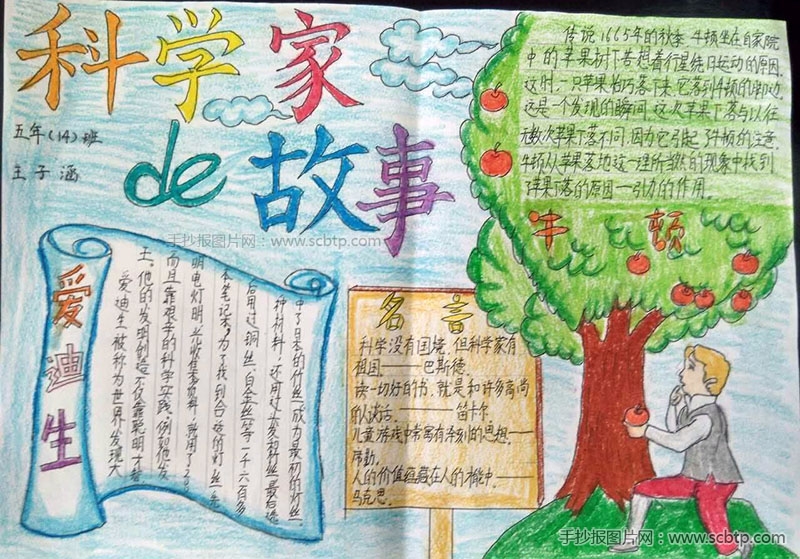 科学家
de 故事
五年(14)班
王子涵
传说1665年的秋季,牛顿坐在自家院
中的苹果树下苦想着行星绕日运动的原因.
这时,一只苹果恰巧落下来,它落到牛顿的脚边.
这是一个发现的瞬间,这次苹果下落与以往
无数次苹果下落不同,因为它引起了牛顿的注意.
牛顿从苹果落地这一理所当然的现象中找到
了苹果下落的原因—引力的作用。
牛顿
手抄报图片网:www.scbtp.com
爱迪生
爱迪生被称为世界发现大
王,他的发明创造不仅靠聪明才智
而且靠艰辛的科学实践,例如他发
明电灯时,光收集资料,就用了
本笔记本,为了找到合适的灯丝,先
后用过铜丝、白金丝等一千六百多
种材料,还用过头发和丝,最后选
中了日本的竹丝成为最初的灯丝
名言
科学没有国境,但科学家有
祖国——巴斯德.
读一切好的书,就是和许多高尚
的人谈话.——笛卡尔.
儿童游戏中常寓有深刻的思想.——
席勒.
人的价值蕴藏在人的才能中.——
马克思.
手抄报图片网:www.scbtp.com